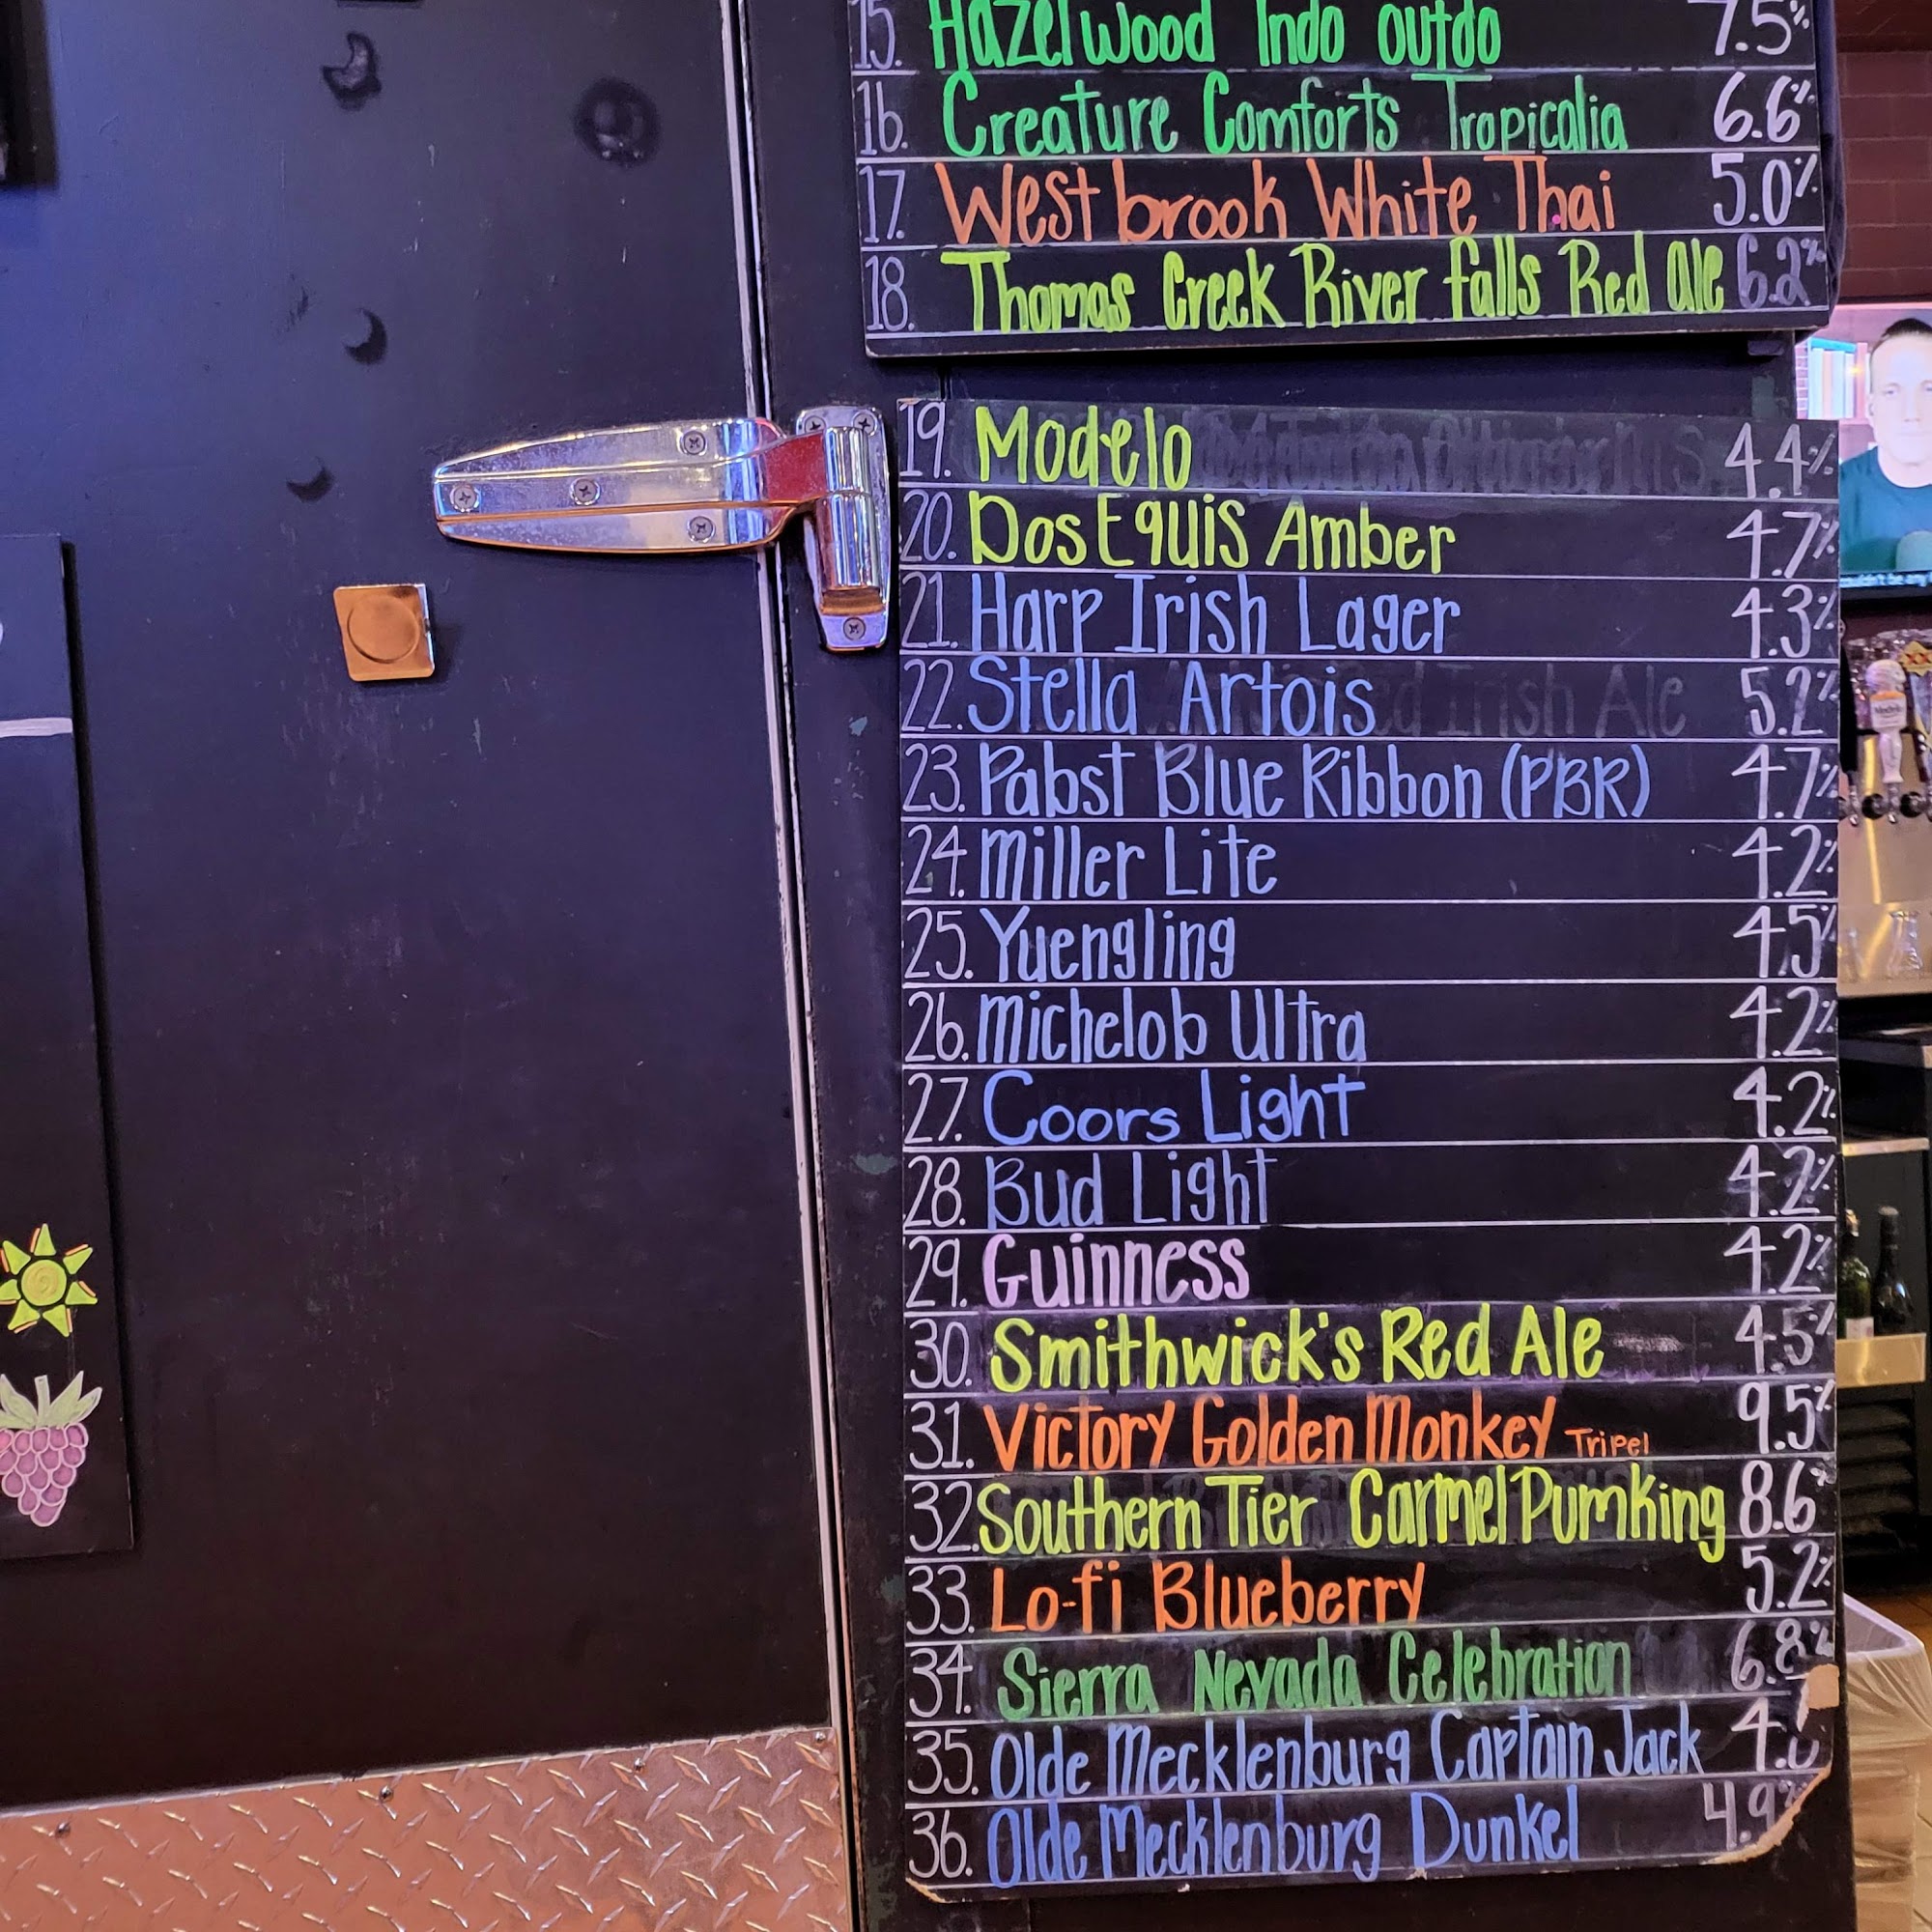 15. Hazelwood Indo outdo 7.5%
16. Creature Comforts Tropicalia 6.6%
17. Westbrook White Thai 5.0%
18. Thomas Creek River falls Red ale 6.2%
19. Modelo 4.4%
20. Dos Equis Amber 4.7%
21. Harp Irish Lager 4.3%
22. Stella Artois 5.2%
23. Pabst Blue Ribbon (PBR) 4.7%
24. Miller Lite 4.2%
25. Yuengling 4.5%
26. Michelob Ultra 4.2%
27. Coors Light 4.2%
28. Bud Light 4.2%
29. Guinness 4.2%
30. Smithwick's Red Ale 4.5%
31. Victory Golden Monkey Tripel 9.5%
32. Southern Tier Carmel Pumking 8.6%
33. Lo-fi Blueberry 5.2%
34. Sierra Nevada Celebration 6.8%
35. Olde Mecklenburg Captain Jack
36. Olde Mecklenburg Dunkel 4.9%